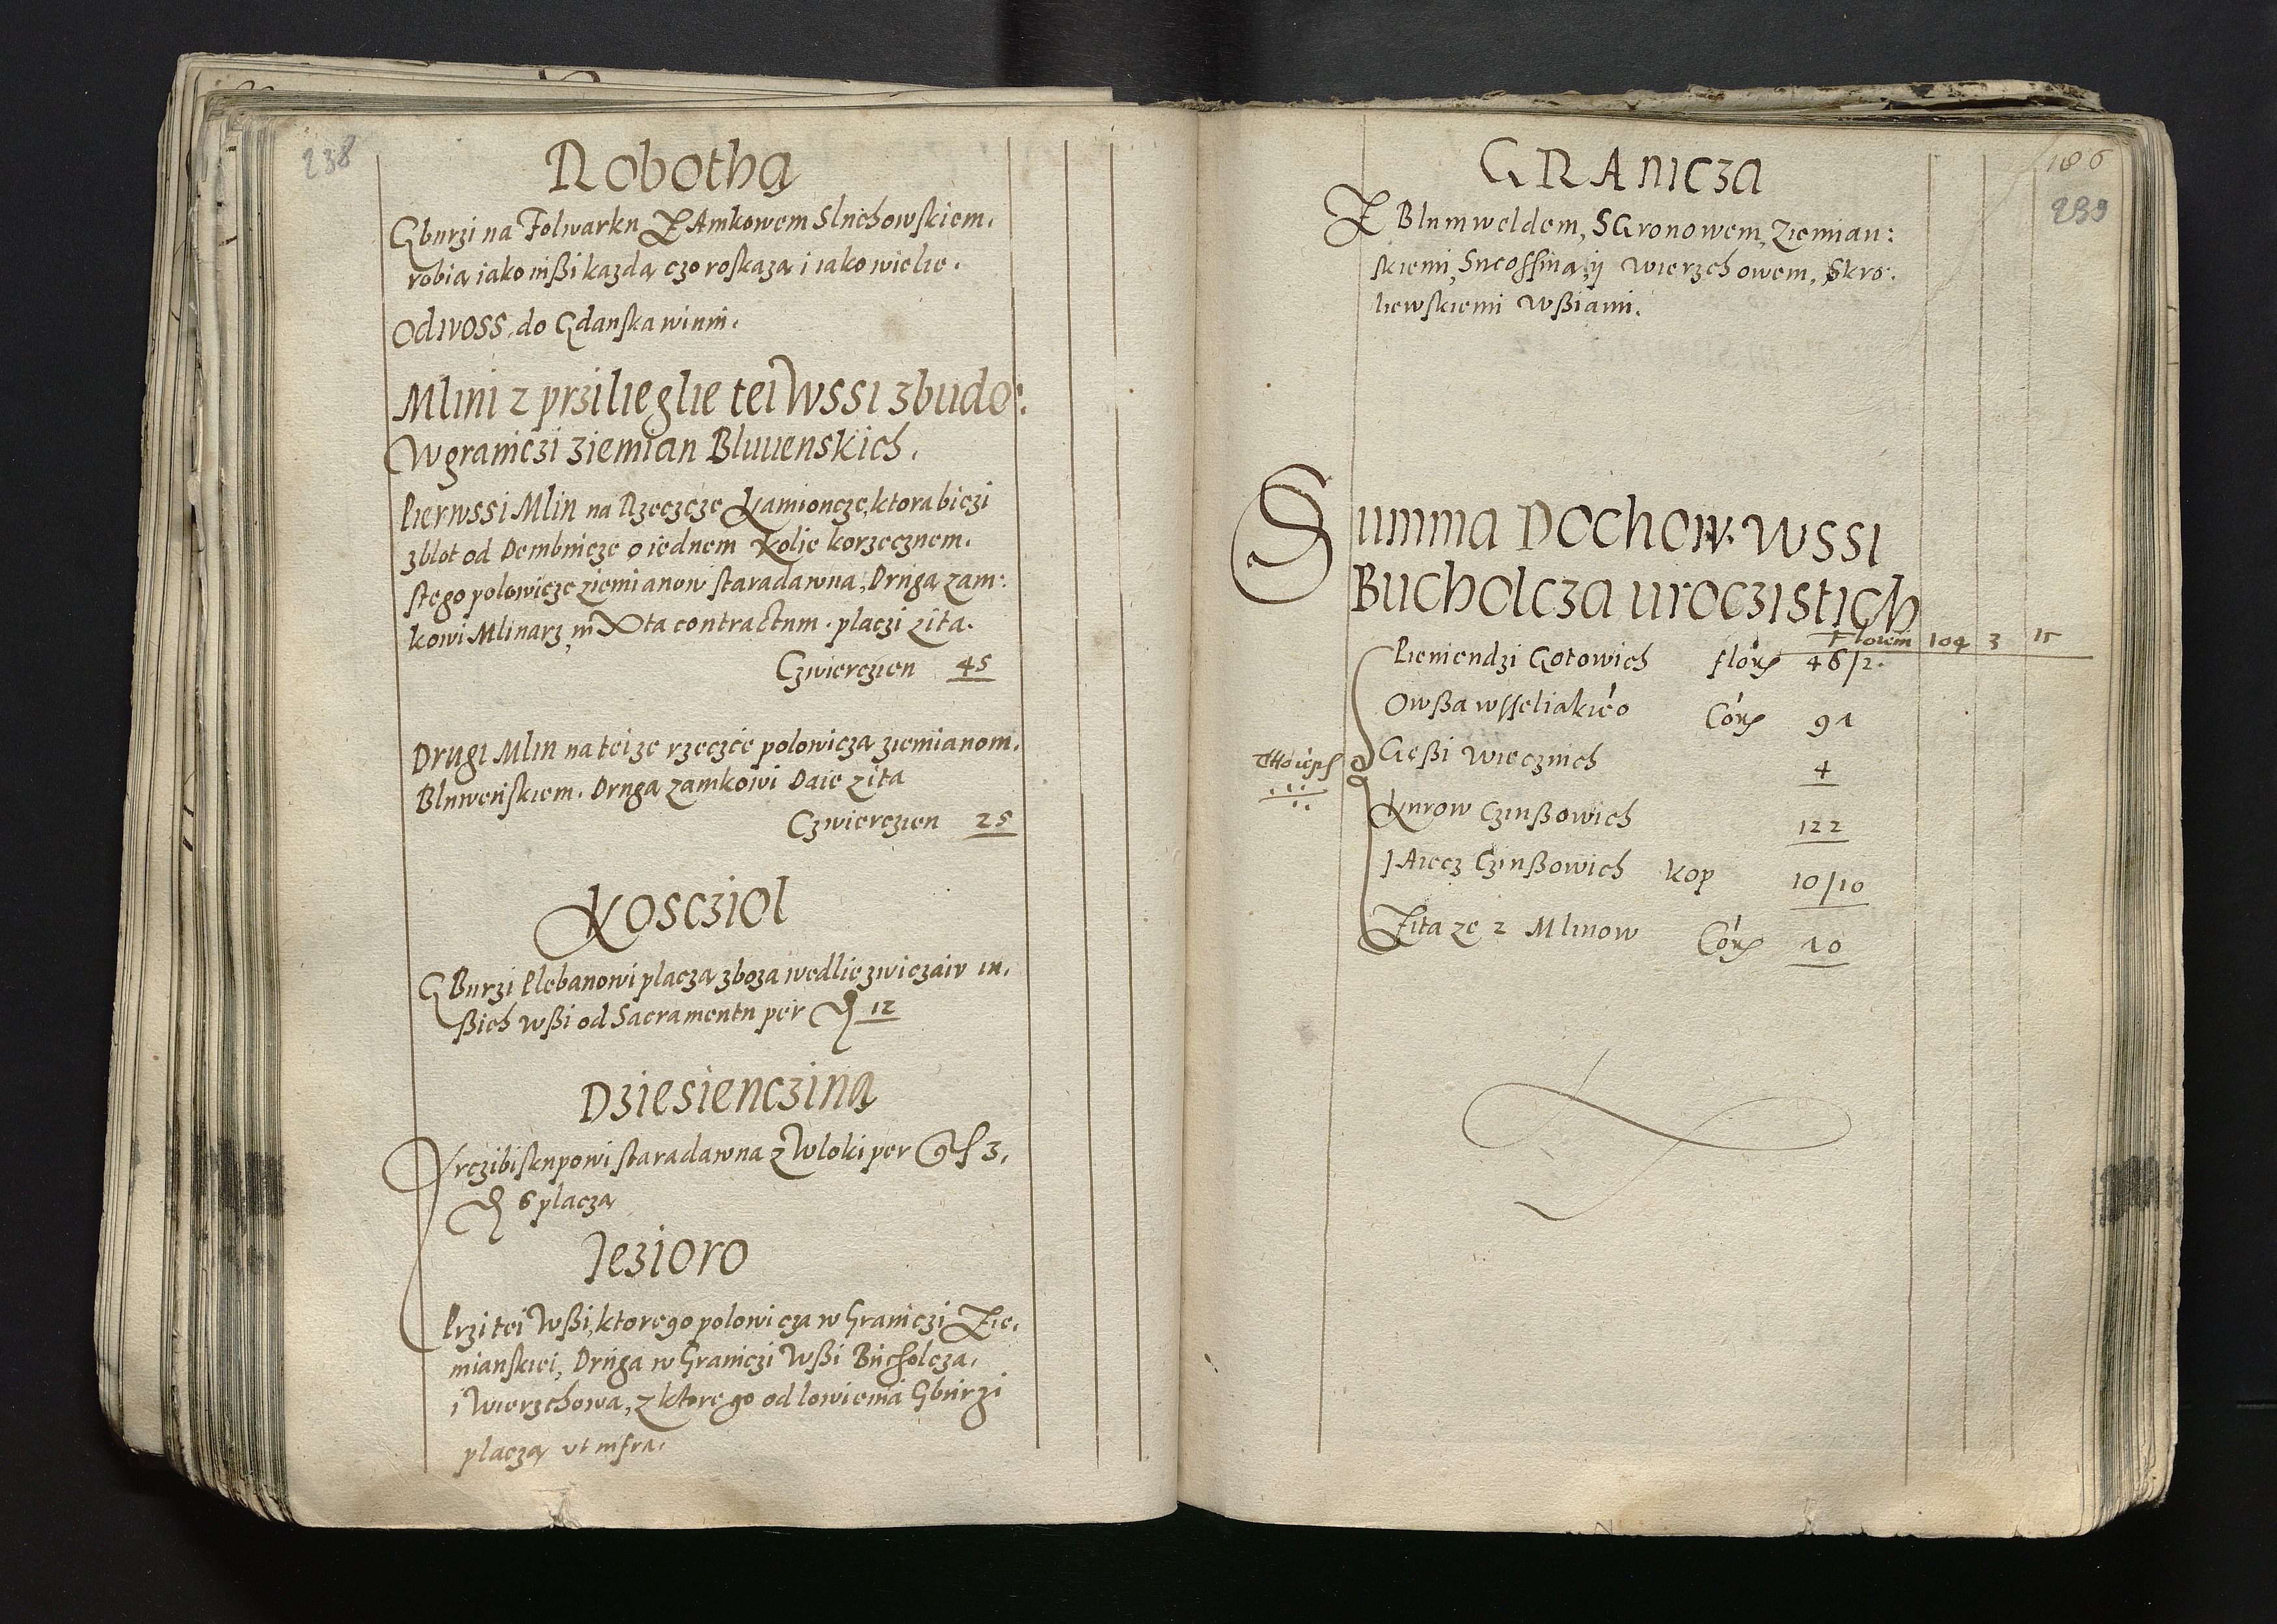 238
Robothą
Gburzi na Folwarku ZAmkowem Sluchowskiem.
robią iako inßi kazdą czo roskażą i iako wielie.
Odwoss do Gdanska winni.
Mlini 2 przilieglie tei Wssi zbudo:
W graniczi ziemian Bluuenskich.
Pierwssi Mlin na Rzeczcze Kamioncze, ktora bieżi
z blot od Dembnicze o iednem Kolie korzecznem.
s tego polowicze ziemianow staradawna, Druga zam:
kowi Mlinarz contractum. placzi zita.
Czwierczien 45
Drugi Mlin na teize rzeczce polowicza ziemianom.
Bluwenskiem. Druga zamkowi Daie zita
Czwierczien 25
Kosczjol
GBurzi Plebanowi placzą zboza wedlie zwiczaiu in.
ßich wßi od Sacramentu per 12
Dziesienczina
Arczibiskupowi staradawna z Wloki per 3.
6 placzą
Jezioro
Przi tei Wßi, ktorego polowicza w Graniczi Zie.
mianskiei, Druga w Graniczi Wßi Bucholcza.
i Wierzchowa, z ktorego od lowienia Gburzi
placzą ut infra.
186
239
GRAnicza
Z Blumweldem, SGronowem, Ziemian:
skiemi, ij Wierzchowem, Skro:
liewskiemi Wßiami.
Summa Dochow: Wssi
Bucholcza uroczistich
Floren 104 3 15
Pieniendzi Gotowich flor 46/2.
Owßa wsseliakieo Cor 91
Gęßi Wiecznich 4
Kurow Czinßowich 122
JAiecz Czinßowich Kop 10/10
Zita ze 2 Mlinow Cor 10